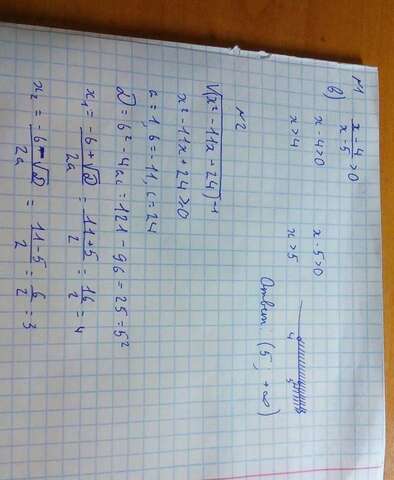 №1
в) (x-4)/(x-5) > 0
x-4>0 x-5>0
x>4 x>5
4 5
Ответ: (5; +∞)
№2
√(x²-11x+24)⁻¹
x²-11x+24>0
a=1, b=-11, c=24
D=b²-4ac=121-96=25=5²
x₁ = (-b+√D)/2a = (11+5)/2 = 16/2 = 4
x₂ = (-b-√D)/2a = (11-5)/2 = 6/2 = 3